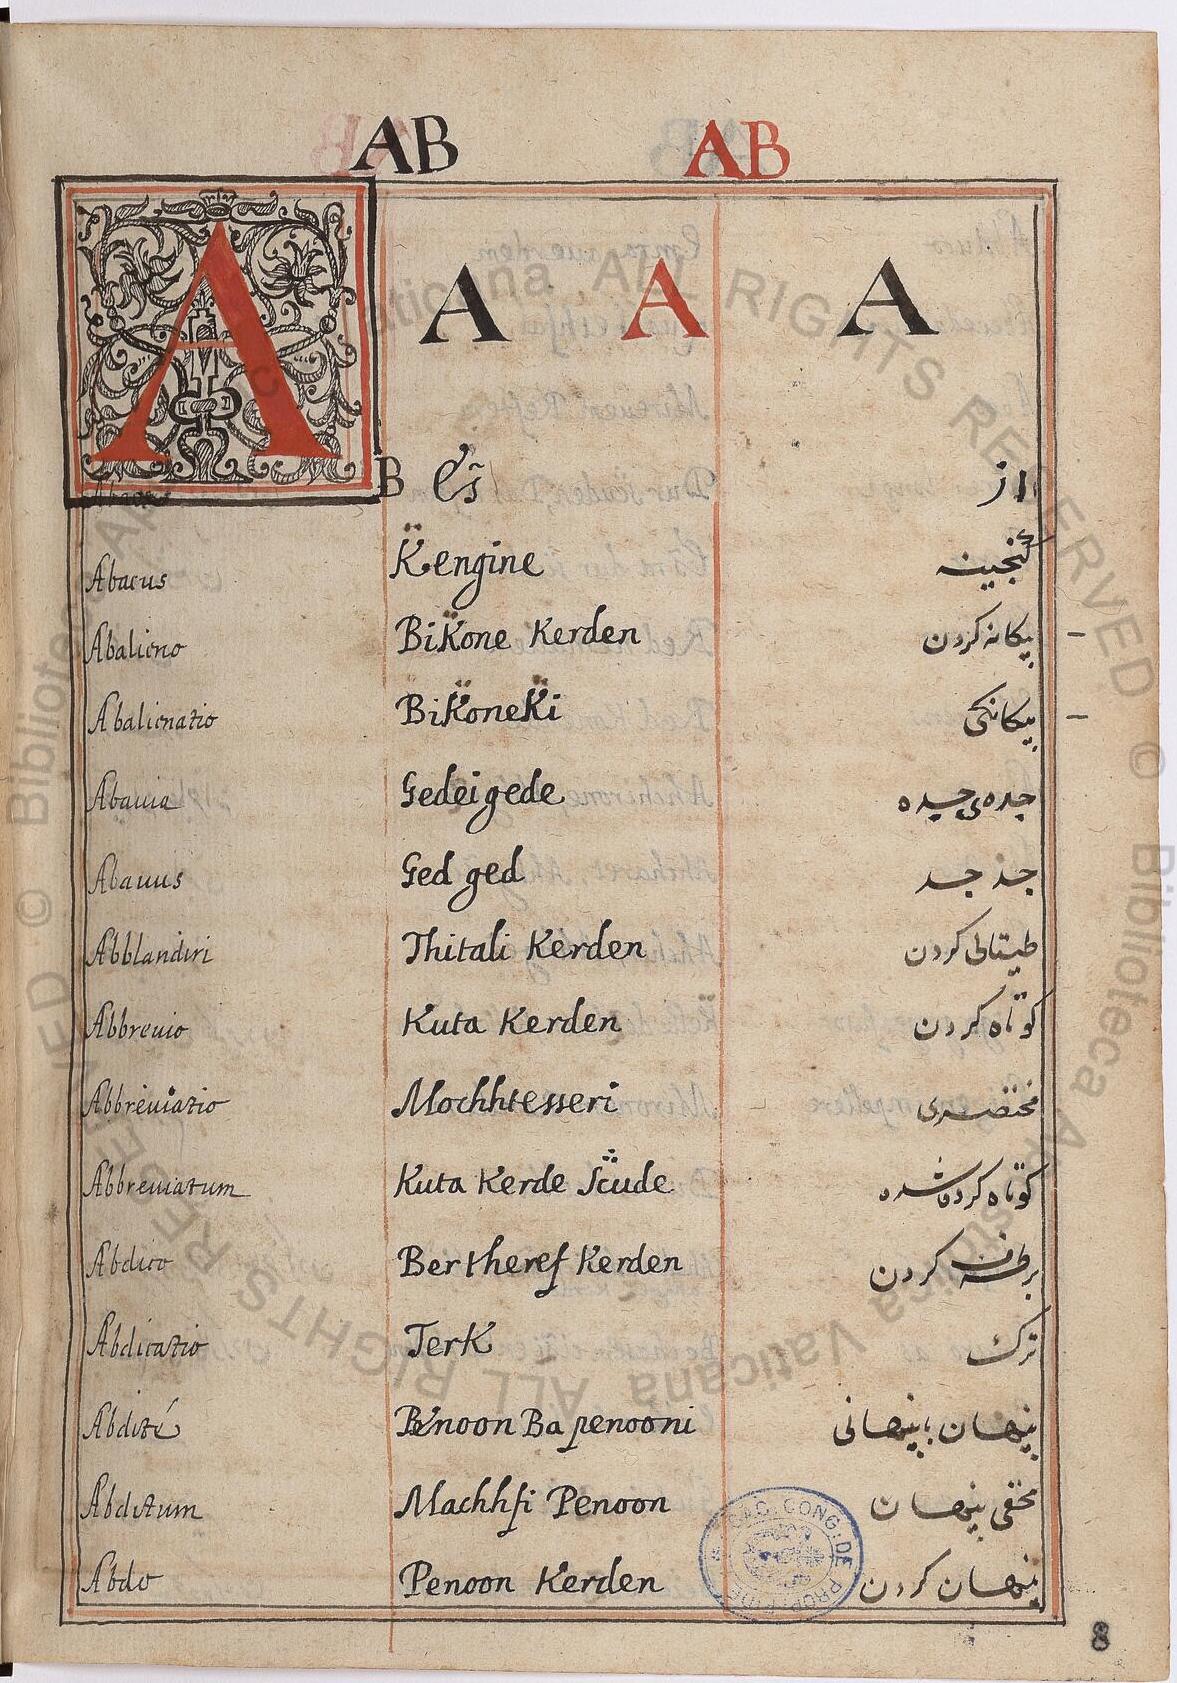 AB AB
A A A A
B Es از
Abacus Kengine گنجینه
Abalieno Bikone Kerden بیکانه کردن
Abalienatio BikoneKi بیکانکی
Abauia Gedei gede جده‌ی جده
Abauus Ged ged جد جد
Abblandiri Thitali Kerden طیتالی کردن
Abbreuio Kuta Kerden کوتاه کردن
Abbreuiatio Mochhtesseri مختصری
Abbreuiatum Kuta Kerde Scude کوتاه کرده شده
Abdico Bertheref Kerden برطرف کردن
Abdicatio Terk ترک
Abdité Penoon Ba penooni پنهان بپنهانی
Abditum Machhfi Penoon مخفی پنهان
Abdo Penoon Kerden پنهان کردن
8
SAC. CONG. DE PROP. FIDE
© Biblioteca Apostolica Vaticana ALL RIGHTS RESERVED